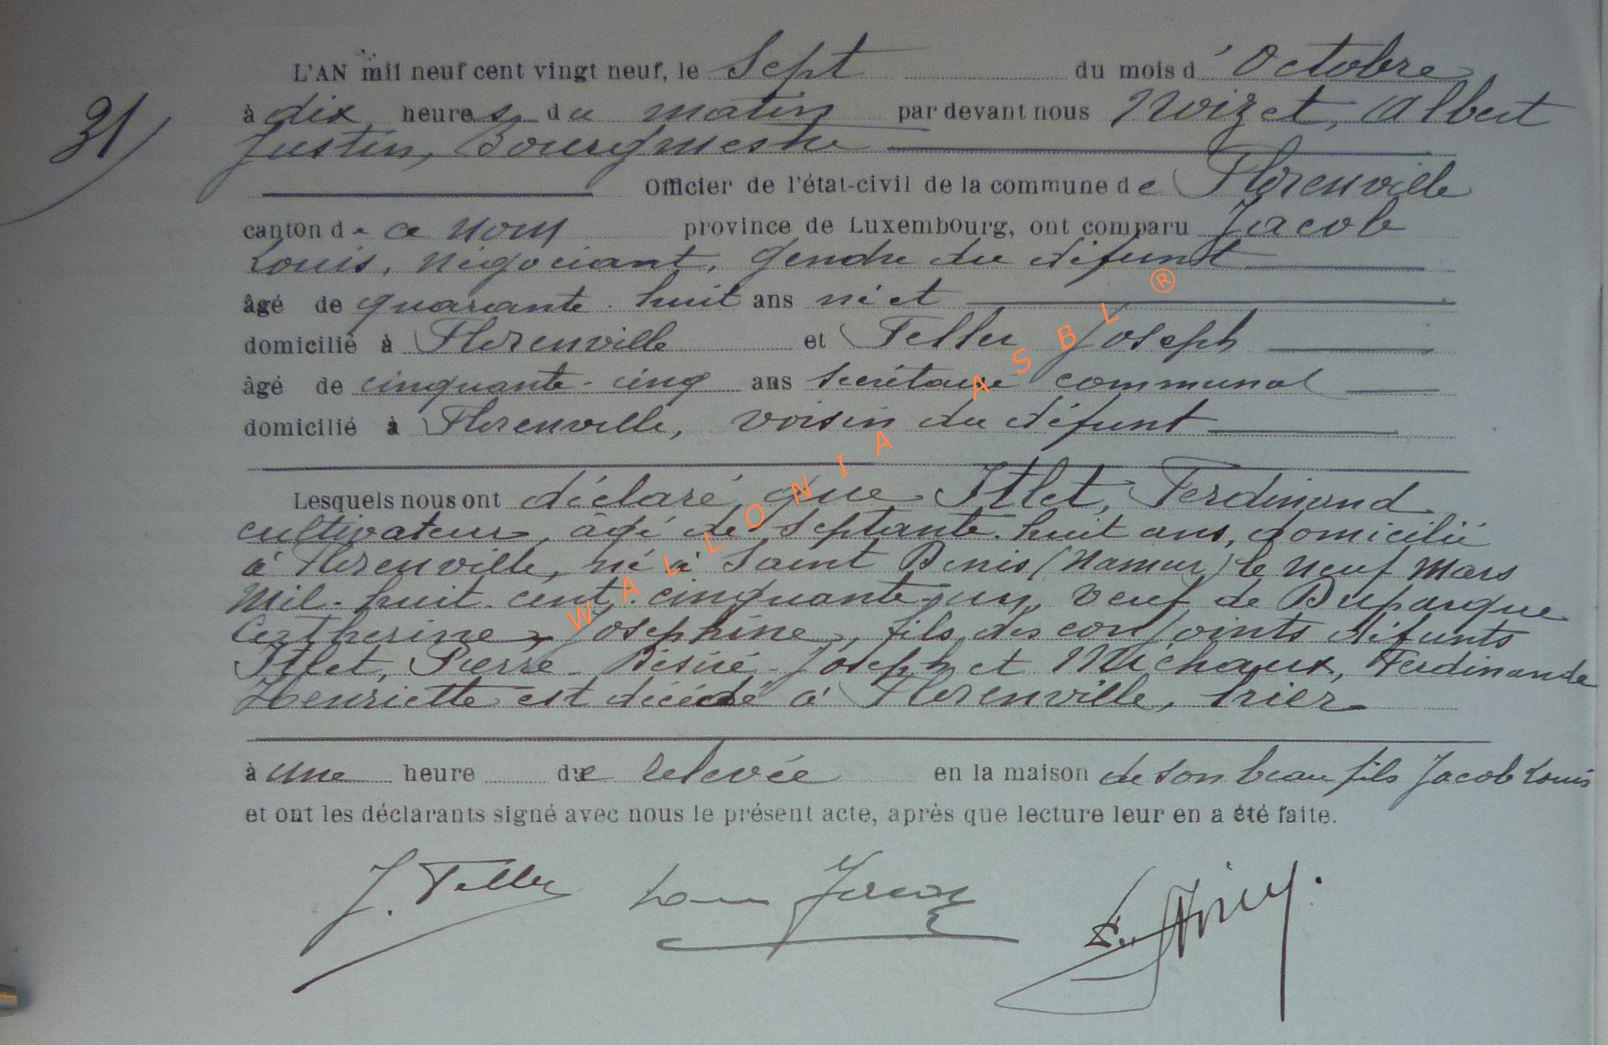 L'AN mil neuf cent vingt neuf, le Sept du mois d'Octobre
31
à dix heures du matin par devant nous Noizet, Albert
Justin, Bourgmestre
Officier de l'état-civil de la commune de Florenville
canton de ce nom province de Luxembourg, ont comparu Jacob
Louis, négociant, gendre du défunt
âgé de quarante-huit ans né et
domicilié à Florenville et Feller Joseph
âgé de cinquante-cinq ans secrétaire communal
domicilié à Florenville, voisin du défunt
Lesquels nous ont déclaré que Itlet, Ferdinand
cultivateur, agé de septante-huit ans, domicilié
à Florenville, né à Saint Denis (Namur) le neuf Mars
Mil-huit-cent-cinquante-un, veuf de Duparque
Catherine-Josephine, fils des conjoints défunts
Itlet, Pierre-Désiré-Joseph et Michaux, Ferdinande
Henriette est décédé à Florenville, hier
à une heure de relevée en la maison de son beau fils Jacob Louis
et ont les déclarants signé avec nous le présent acte, après que lecture leur en a été faite.
J. Feller Louis Jacob
WALLONIA ASBL ®